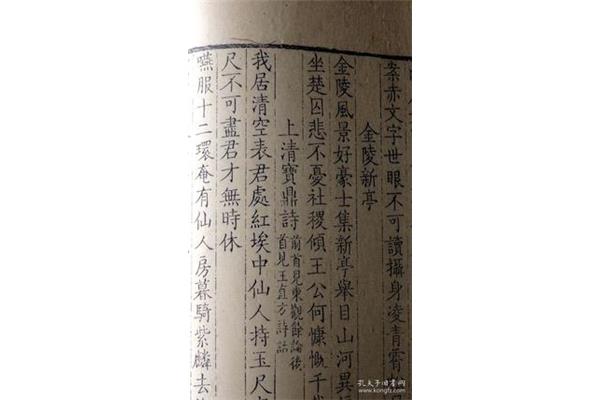 案赤文字世眼不可讀攝身凌青霄
金陵新亭
金陵風景好豪士集新亭舉目山河異
坐楚囚悲不憂社稷傾王公何慷慨千
上清寶鼎詩
前首見東觀餘論後
首見王直方詩話
我居清空表君處紅埃中仙人持玉尺
尺不可盡君才無時休
嚥服十二環奄有仙人房暮騎紫麟去
孔夫子旧书网
www.kongfz.com